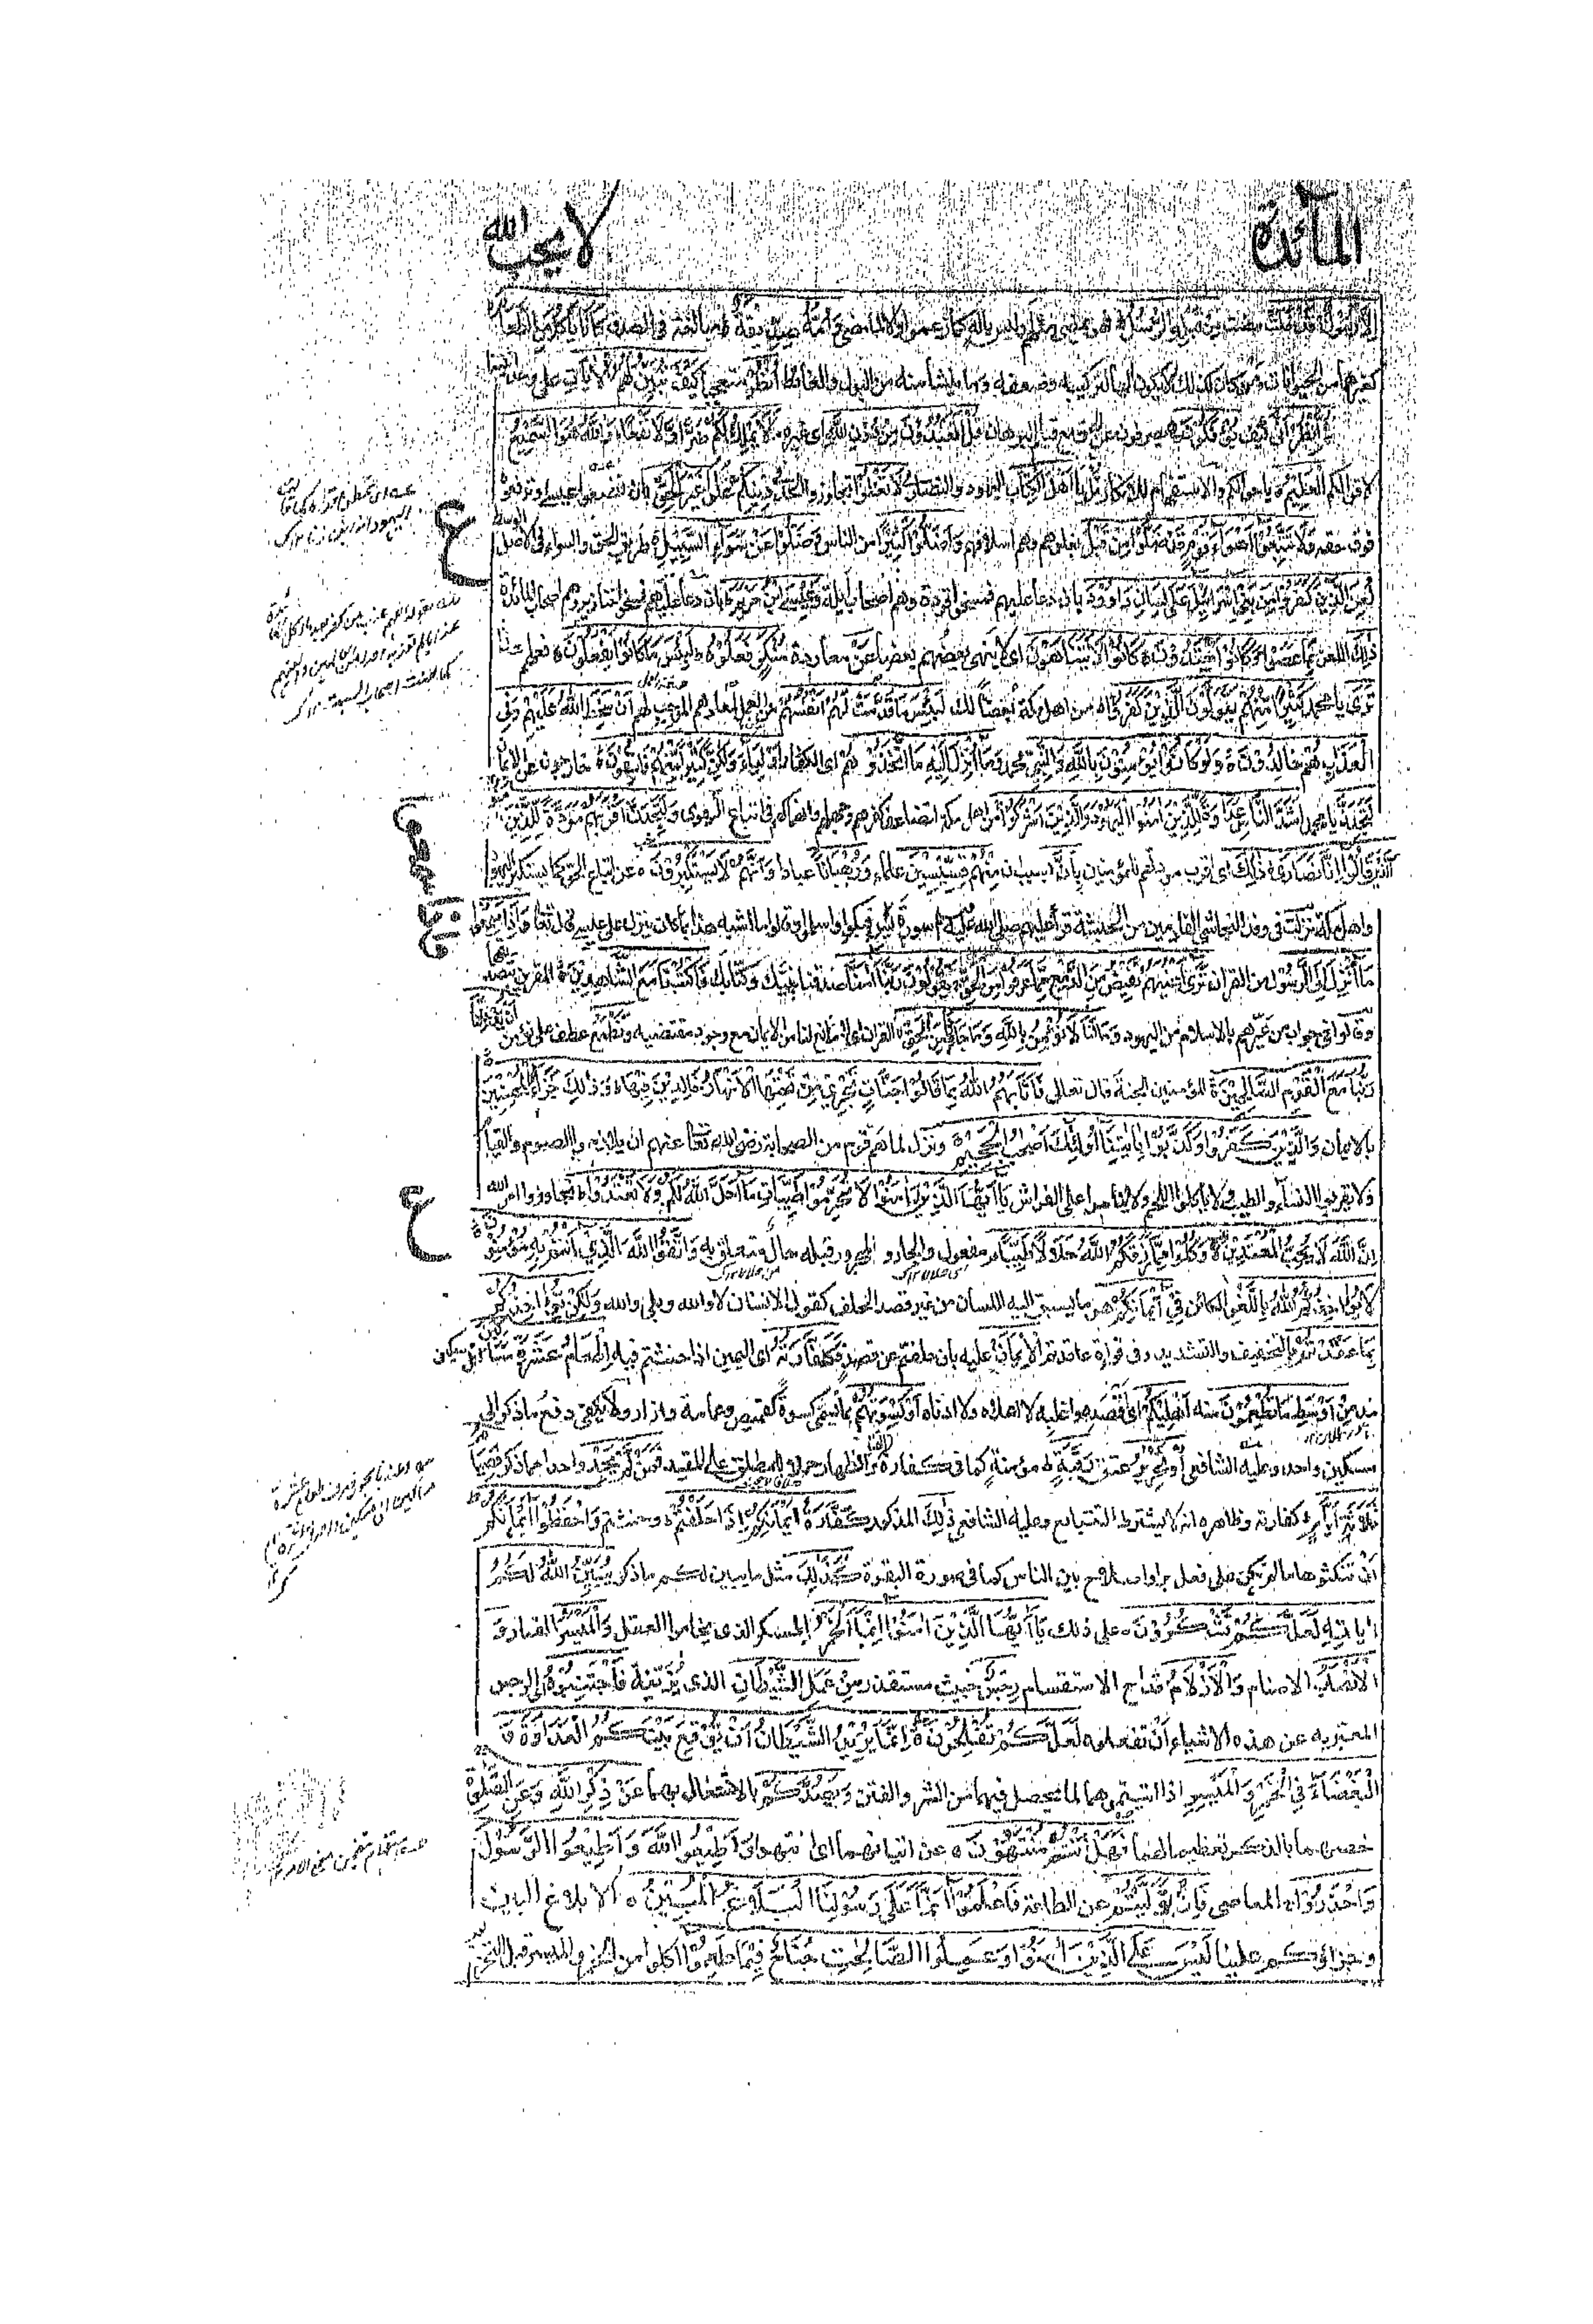 المآئدة
لا يحب الله
إِلَّا رَسُوْلٌ قَدْ خَلَتْ مضت مِنْ قَبْلِهِ الرُّسُلُ فهو يمضى مثلهم وليس باله كما زعموا والا لما مضى وَأُمُّهُ صِدِّيْقَةٌ مبالغة فى الصدق كَانَا يَأْكُلَانِ الطَّعَامَ
كغيرهما من الحيوانات ومن كان كذلك لا يكون الها لتركيبه وضعفه وما ينشأ منه من البول والغائط اُنْظُرْ متعجبا كَيْفَ نُبَيِّنُ لَهُمُ الْاٰيَاتِ على وحدانيتنا
ثُمَّ انْظُرْ أَنّٰى كيف يُؤْفَكُوْنَ يصرفون عن الحق مع قيام البرهان قُلْ أَتَعْبُدُوْنَ مِنْ دُوْنِ اللّٰهِ اى غيره مَا لَا يَمْلِكُ لَكُمْ ضَرًّا وَّلَا نَفْعًا وَاللّٰهُ هُوَ السَّمِيْعُ
لاقوالكم الْعَلِيْمُ باحوالكم والاستفهام للانكار قُلْ يَا أَهْلَ الْكِتَابِ اليهود والنصارى لَا تَغْلُوْا تجاوزوا الحد فِيْ دِيْنِكُمْ غلوا غَيْرَ الْحَقِّ بان تضعوا عيسى او ترفعوه
فوق حقه وَلَا تَتَّبِعُوْا أَهْوَاءَ قَوْمٍ قَدْ ضَلُّوْا مِنْ قَبْلُ بغلوهم وهم اسلافهم وَأَضَلُّوْا كَثِيْرًا من الناس وَضَلُّوْا عَنْ سَوَاءِ السَّبِيْلِ طريق الحق والسواء فى الاصل الوسط
لُعِنَ الَّذِيْنَ كَفَرُوْا مِنْ بَنِيْ إِسْرَائِيْلَ عَلٰى لِسَانِ دَاوٗدَ بان دعا عليهم فمسخوا قردة وهم اصحاب ايلة وَعِيْسَى ابْنِ مَرْيَمَ بان دعا عليهم فمسخوا خنازير وهم اصحاب المائدة
ذٰلِكَ اللعن بِمَا عَصَوْا وَّكَانُوْا يَعْتَدُوْنَ كَانُوْا لَا يَتَنَاهَوْنَ اى لا ينهى بعضهم بعضا عَنْ معاودة مُنْكَرٍ فَعَلُوْهُ لَبِئْسَ مَا كَانُوْا يَفْعَلُوْنَ فعلهم هذا
تَرٰى يا محمد كَثِيْرًا مِّنْهُمْ يَتَوَلَّوْنَ الَّذِيْنَ كَفَرُوْا من اهل مكة بغضا لك لَبِئْسَ مَا قَدَّمَتْ لَهُمْ أَنْفُسُهُمْ من العمل لمعادهم الموجب لهم أَنْ سَخِطَ اللّٰهُ عَلَيْهِمْ وَفِي
الْعَذَابِ هُمْ خَالِدُوْنَ وَلَوْ كَانُوْا يُؤْمِنُوْنَ بِاللّٰهِ وَالنَّبِيِّ محمد وَمَا أُنْزِلَ إِلَيْهِ مَا اتَّخَذُوْهُمْ اى الكفار أَوْلِيَاءَ وَلٰكِنَّ كَثِيْرًا مِّنْهُمْ فَاسِقُوْنَ خارجون عن الايمان
لَتَجِدَنَّ يا محمد أَشَدَّ النَّاسِ عَدَاوَةً لِّلَّذِيْنَ اٰمَنُوا الْيَهُوْدَ وَالَّذِيْنَ أَشْرَكُوْا من اهل مكة لتضاعف كفرهم وجهلهم وانهماكهم فى اتباع الهوى وَلَتَجِدَنَّ أَقْرَبَهُمْ مَّوَدَّةً لِّلَّذِيْنَ
اٰمَنُوا الَّذِيْنَ قَالُوْا إِنَّا نَصَارٰى ذٰلِكَ اى قرب مودتهم للمؤمنين بِأَنَّ بسبب ان مِنْهُمْ قِسِّيْسِيْنَ علماء وَرُهْبَانًا عبادا وَأَنَّهُمْ لَا يَسْتَكْبِرُوْنَ عن اتباع الحق كما يستكبر اليهود
واهل مكة نزلت فى وفد النجاشى القادمين من الحبشة قرأ عليهم صلى الله عليه وسلم سورة يس فبكوا واسلموا وقالوا ما اشبه هذا بما كان ينزل على عيسى قال تعالى وَإِذَا سَمِعُوْا
مَا أُنْزِلَ إِلَى الرَّسُوْلِ من القران تَرٰى أَعْيُنَهُمْ تَفِيْضُ مِنَ الدَّمْعِ مِمَّا عَرَفُوْا مِنَ الْحَقِّ يَقُوْلُوْنَ رَبَّنَا اٰمَنَّا صدقنا بنبيك وكتابك فَاكْتُبْنَا مَعَ الشَّاهِدِيْنَ المقرين بتصديقهما
وقالوا فى جواب من عيرهم بالاسلام من اليهود وَمَا لَنَا لَا نُؤْمِنُ بِاللّٰهِ وَمَا جَاءَنَا مِنَ الْحَقِّ القران اى لا مانع لنا من الايمان مع وجود مقتضيه وَنَطْمَعُ عطف على نؤمن أَنْ يُّدْخِلَنَا
رَبُّنَا مَعَ الْقَوْمِ الصَّالِحِيْنَ المؤمنين الجنة قال تعالى فَأَثَابَهُمُ اللّٰهُ بِمَا قَالُوْا جَنَّاتٍ تَجْرِيْ مِنْ تَحْتِهَا الْأَنْهَارُ خَالِدِيْنَ فِيْهَا وَذٰلِكَ جَزَاءُ الْمُحْسِنِيْنَ
بالايمان وَالَّذِيْنَ كَفَرُوْا وَكَذَّبُوْا بِاٰيَاتِنَا أُولٰئِكَ أَصْحٰبُ الْجَحِيْمِ ونزل لما هم قوم من الصحابة رضى الله تعالى عنهم ان يلازموا الصوم والقيام
ولا يقربوا النساء والطيب ولا ياكلوا اللحم ولا يناموا على الفراش يَا أَيُّهَا الَّذِيْنَ اٰمَنُوْا لَا تُحَرِّمُوْا طَيِّبَاتِ مَا أَحَلَّ اللّٰهُ لَكُمْ وَلَا تَعْتَدُوْا تتجاوزوا امر الله
إِنَّ اللّٰهَ لَا يُحِبُّ الْمُعْتَدِيْنَ وَكُلُوْا مِمَّا رَزَقَكُمُ اللّٰهُ حَلٰلًا طَيِّبًا مفعول والجار والمجرور قبله حال متعلق به وَاتَّقُوا اللّٰهَ الَّذِيْ أَنْتُمْ بِهٖ مُؤْمِنُوْنَ
لَا يُؤَاخِذُكُمُ اللّٰهُ بِاللَّغْوِ الكائن فِيْ أَيْمَانِكُمْ هو ما يسبق اليه اللسان من غير قصد الحلف كقول الانسان لا والله وبلى والله وَلٰكِنْ يُّؤَاخِذُكُمْ
بِمَا عَقَّدْتُّمُ بالتخفيف والتشديد وفى قراءة عاقدتم الْأَيْمَانَ عليه بان حلفتم عن قصد فَكَفَّارَتُهُ اى اليمين اذا حنثتم فيه إِطْعَامُ عَشَرَةِ مَسَاكِيْنَ لكل مسكين
مد مِنْ أَوْسَطِ مَا تُطْعِمُوْنَ منه أَهْلِيْكُمْ اى اقصده واغلبه لا اعلاه ولا ادناه أَوْ كِسْوَتُهُمْ بما يسمى كسوة كقميص وعمامة وازار ولا يكفى دفع ما ذكر الى
مسكين واحد وعليه الشافعى أَوْ تَحْرِيْرُ عتق رَقَبَةٍ مؤمنة كما فى كفارة القتل والظهار حملا للمطلق على المقيد فَمَنْ لَّمْ يَجِدْ واحدا مما ذكر فَصِيَامُ
ثَلَاثَةِ أَيَّامٍ كفارته وظاهره انه لا يشترط التتابع وعليه الشافعى ذٰلِكَ المذكور كَفَّارَةُ أَيْمَانِكُمْ إِذَا حَلَفْتُمْ وحنثتم وَاحْفَظُوْا أَيْمَانَكُمْ
ان تنكثوها ما لم تكن على فعل بر او اصلاح بين الناس كما فى سورة البقرة كَذٰلِكَ مثل ما يبين لكم ما ذكر يُبَيِّنُ اللّٰهُ لَكُمْ
اٰيَاتِهِ لَعَلَّكُمْ تَشْكُرُوْنَ على ذلك يَا أَيُّهَا الَّذِيْنَ اٰمَنُوْا إِنَّمَا الْخَمْرُ المسكر الذى يخامر العقل وَالْمَيْسِرُ القمار وَ
الْأَنْصَابُ الاصنام وَالْأَزْلَامُ قداح الاستقسام رِجْسٌ خبيث مستقذر مِنْ عَمَلِ الشَّيْطَانِ الذى يزينه فَاجْتَنِبُوْهُ اى الرجس
المعبر به عن هذه الاشياء ان تفعلوه لَعَلَّكُمْ تُفْلِحُوْنَ إِنَّمَا يُرِيْدُ الشَّيْطَانُ أَنْ يُّوْقِعَ بَيْنَكُمُ الْعَدَاوَةَ وَ
الْبَغْضَاءَ فِي الْخَمْرِ وَالْمَيْسِرِ اذا اتيتموهما لما يحصل فيهما من الشر والفتن وَيَصُدَّكُمْ بالاشتغال بهما عَنْ ذِكْرِ اللّٰهِ وَعَنِ الصَّلٰوةِ
خصهما بالذكر تعظيما لها فَهَلْ أَنْتُمْ مُّنْتَهُوْنَ عن اتيانهما اى انتهوا وَأَطِيْعُوا اللّٰهَ وَأَطِيْعُوا الرَّسُوْلَ
وَاحْذَرُوْا المعاصى فَإِنْ تَوَلَّيْتُمْ عن الطاعة فَاعْلَمُوْا أَنَّمَا عَلٰى رَسُوْلِنَا الْبَلٰغُ الْمُبِيْنُ الابلاغ البين
وجزاؤكم علينا لَيْسَ عَلَى الَّذِيْنَ اٰمَنُوْا وَعَمِلُوا الصَّالِحٰتِ جُنَاحٌ فِيْمَا طَعِمُوْا اكلوا من الخمر والميسر قبل التحريم
ع
ع